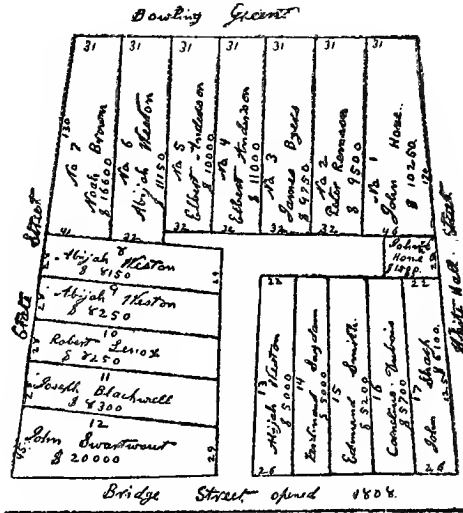 Bowling Green
31 31 31 31 31 31 31
130
No 7
Noah Brown
$ 16600
No 6
Abijah Weston
$ 11150
No 5
Elbert Anderson
$ 10000
No 4
Elbert Anderson
$ 11000
No 3
James Byers
$ 9750
No 2
Peter Remsen
$ 9500
No 1
John Hone
$ 10250
41 32 32 32 32 32 46
State Street
White Hall Street
John Hone
8
Abijah Weston
$ 8150
29
9
Abijah Weston
$ 8250
10
Robert Lenox
$ 8250
11
Joseph Blackwell
$ 8300
12
John Swartwout
$ 20000
29
22
13
Abijah Weston
$ 5000
26
14
Ferdinand Suydam
$ 5000
15
Edmund Smith
$ 5200
16
Cornelius Dubois
$ 5700
22
17
John Sharp
$ 6100
26
Bridge Street opened 1808.